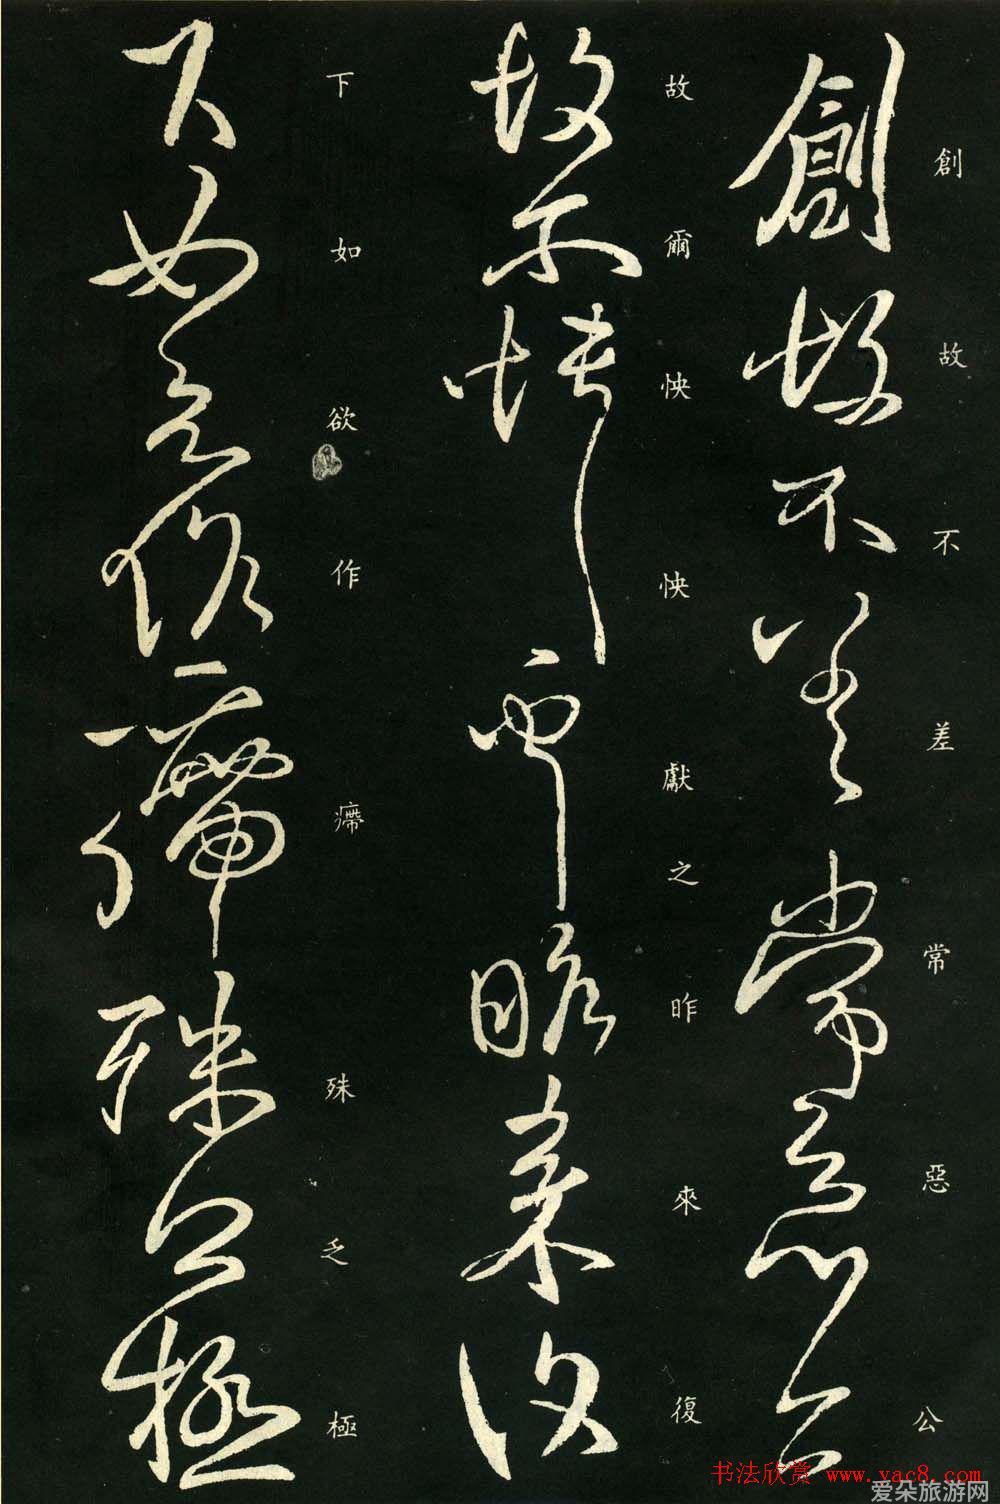 創故不差常惡公
故爾怏怏獻之昨來復
下如欲作㿃殊乏極
书法欣赏 www.yac8.com
爱朵旅游网